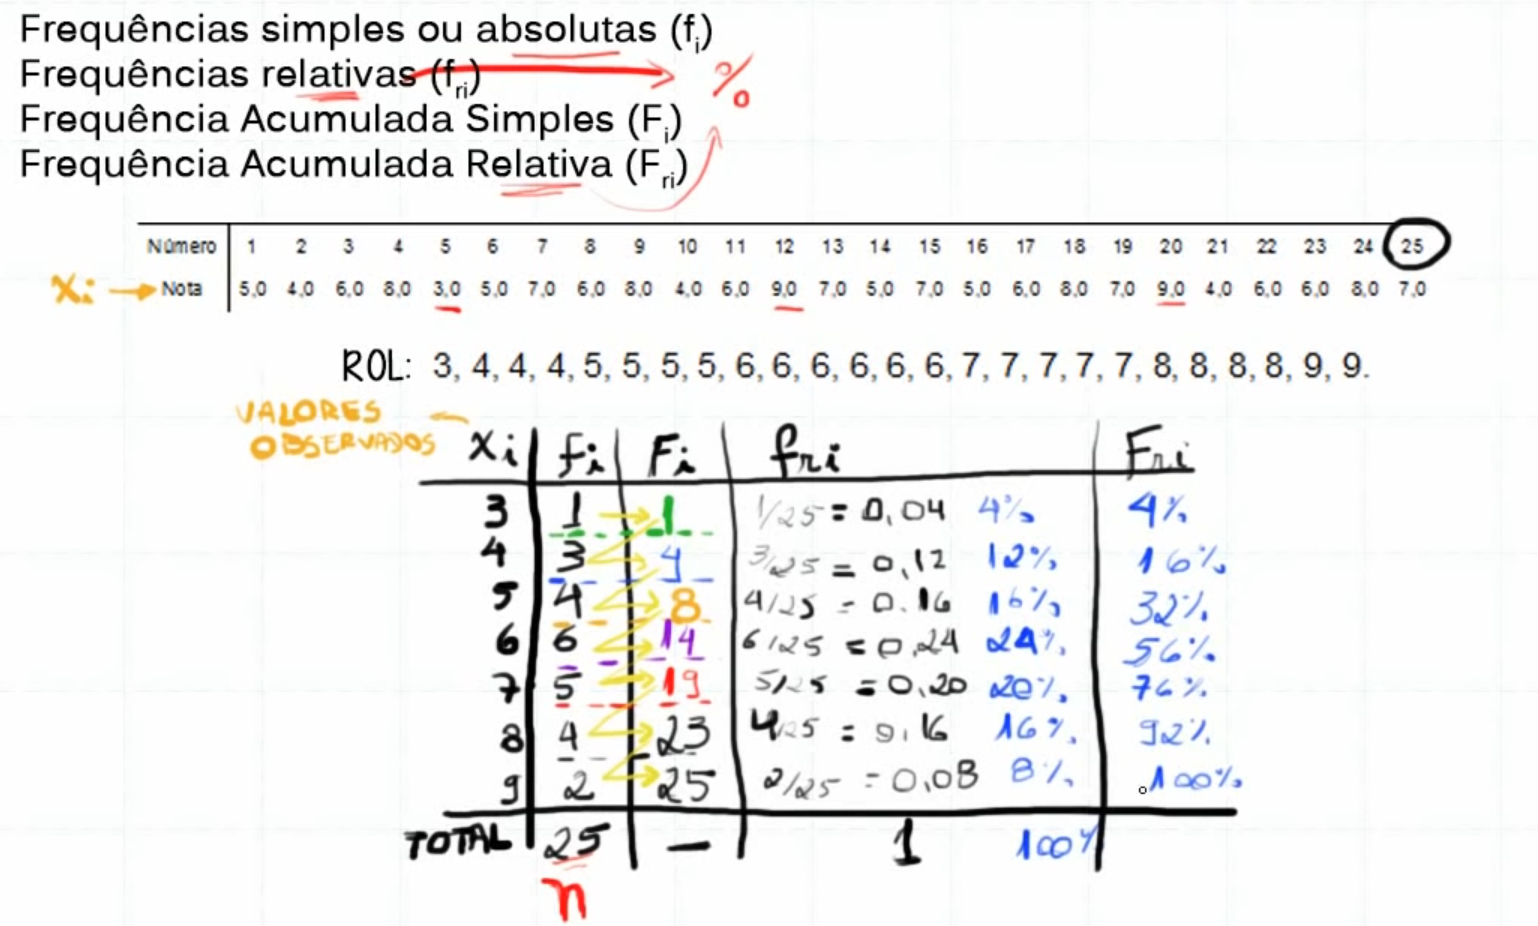 Frequências simples ou absolutas (fi)
Frequências relativas (fri) %
Frequência Acumulada Simples (Fi)
Frequência Acumulada Relativa (Fri)
Número 1 2 3 4 5 6 7 8 9 10 11 12 13 14 15 16 17 18 19 20 21 22 23 24 25
xi Nota 5,0 4,0 6,0 8,0 3,0 5,0 7,0 6,0 8,0 4,0 6,0 9,0 7,0 5,0 7,0 5,0 6,0 8,0 7,0 9,0 4,0 6,0 6,0 8,0 7,0
ROL: 3, 4, 4, 4, 5, 5, 5, 5, 6, 6, 6, 6, 6, 6, 7, 7, 7, 7, 7, 8, 8, 8, 8, 9, 9.
VALORES
OBSERVADOS
xi fi Fi fri Fri
3 1 1 1/25 = 0,04 4% 4%
4 3 4 3/25 = 0,12 12% 16%
5 4 8 4/25 = 0.16 16% 32%
6 6 14 6/25 = 0,24 24% 56%
7 5 19 5/25 = 0,20 20% 76%
8 4 23 4/25 = 0,16 16% 92%
9 2 25 2/25 = 0,08 8% 100%
TOTAL 25 — 1 100%
n